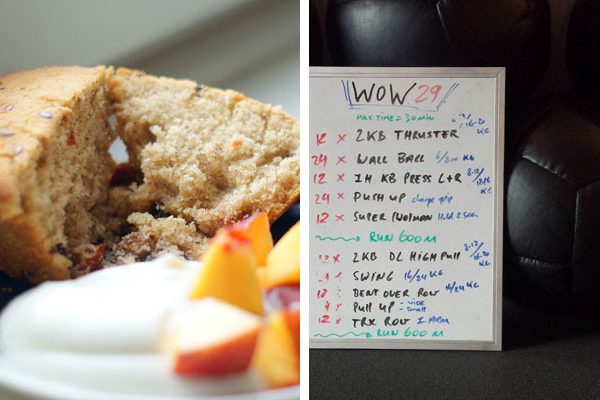 WOW 29
MAX TIME = 30 MIN
12 x 2KB THRUSTER 16-20 KG
24 x WALL BALL KG
12 x 1H KB PRESS L+R 8-12
24 x PUSH UP change grip
12 x SUPER WOMAN Hold 2 sec
RUN 600 M
12 x 2KB DL HIGH PULL 8-12 16-20 KG
SWING 16/24 KG
12 x BENT OVER ROW 16/24 KG
PULL UP - wide - small
12 x TRX ROW
RUN 600 M